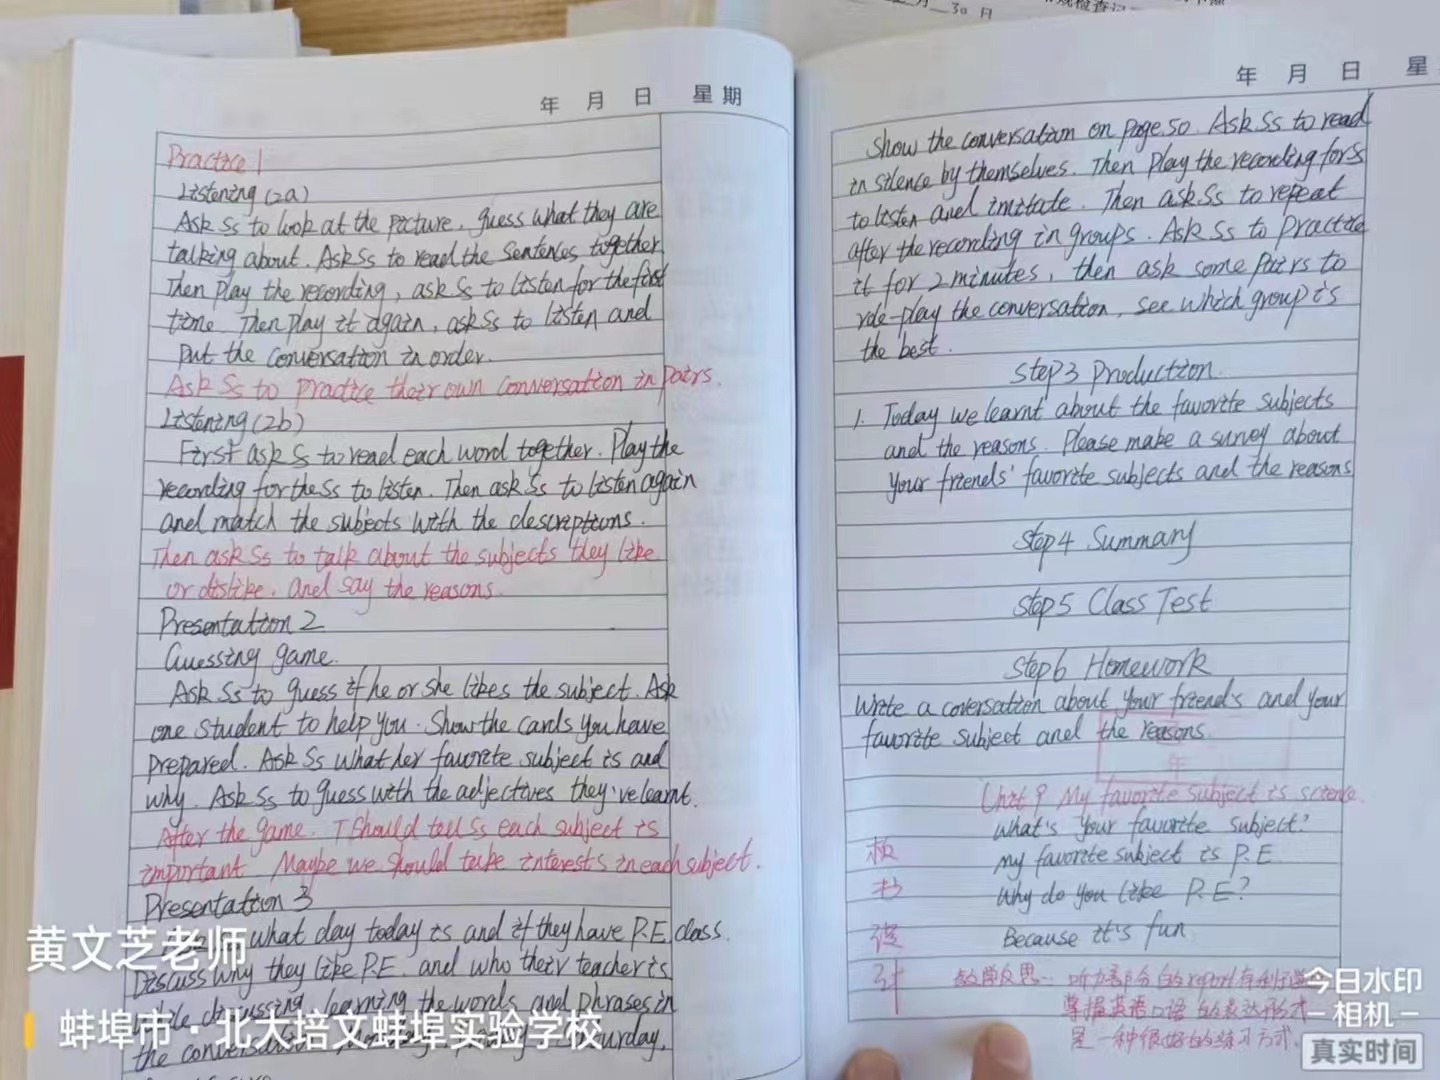 年 月 日 星期
Practice 1
Listening (2a)
Ask Ss to look at the picture, guess what they are
talking about. Ask Ss to read the sentences together.
Then play the recording, ask Ss to listen for the first
time. Then play it again, ask Ss to listen and
put the conversation in order.
Ask Ss to practice their own conversation in pairs.
Listening (2b)
First ask Ss to read each word together. Play the
recording for the Ss to listen. Then ask Ss to listen again
and match the subjects with the descriptions.
Then ask Ss to talk about the subjects they like
or dislike. and say the reasons.
Presentation 2
Guessing game.
Ask Ss to guess if he or she likes the subject. Ask
one student to help you. Show the cards you have
prepared. Ask Ss what her favorite subject is and
why. Ask Ss to guess with the adjectives they've learnt.
After the game. I should tell Ss each subject is
important. Maybe we should take interests in each subject.
Presentation 3
what day today is and if they have P.E. class.
Discuss why they like P.E. and who their teacher is
discussing, learning the words and phrases in
the
年 月 日 星
Show the conversation on page 50. Ask Ss to read
in silence by themselves. Then play the recording for Ss
to listen and imitate. Then ask Ss to repeat
after the recording in groups. Ask Ss to practice
it for 2 minutes, then ask some pairs to
role-play the conversation, see which group is
the best.
Step3 Production.
1. Today we learnt about the favorite subjects
and the reasons. Please make a survey about
your friends' favorite subjects and the reasons
Step4 Summary
Step5 Class Test
Step6 Homework
Write a coversation about your friend's and your
favorite subject and the reasons.
Unit 9 My favorite subject is science.
What's your favorite subject?
My favorite subject is P.E
Why do you like P.E?
Because it's fun
板
书
设
计
教学反思: 听力部分的
掌握英语口语的表达形式
是一种很好的练习方式.
黄文芝老师
蚌埠市·北大培文蚌埠实验学校
今日水印
相机
真实时间